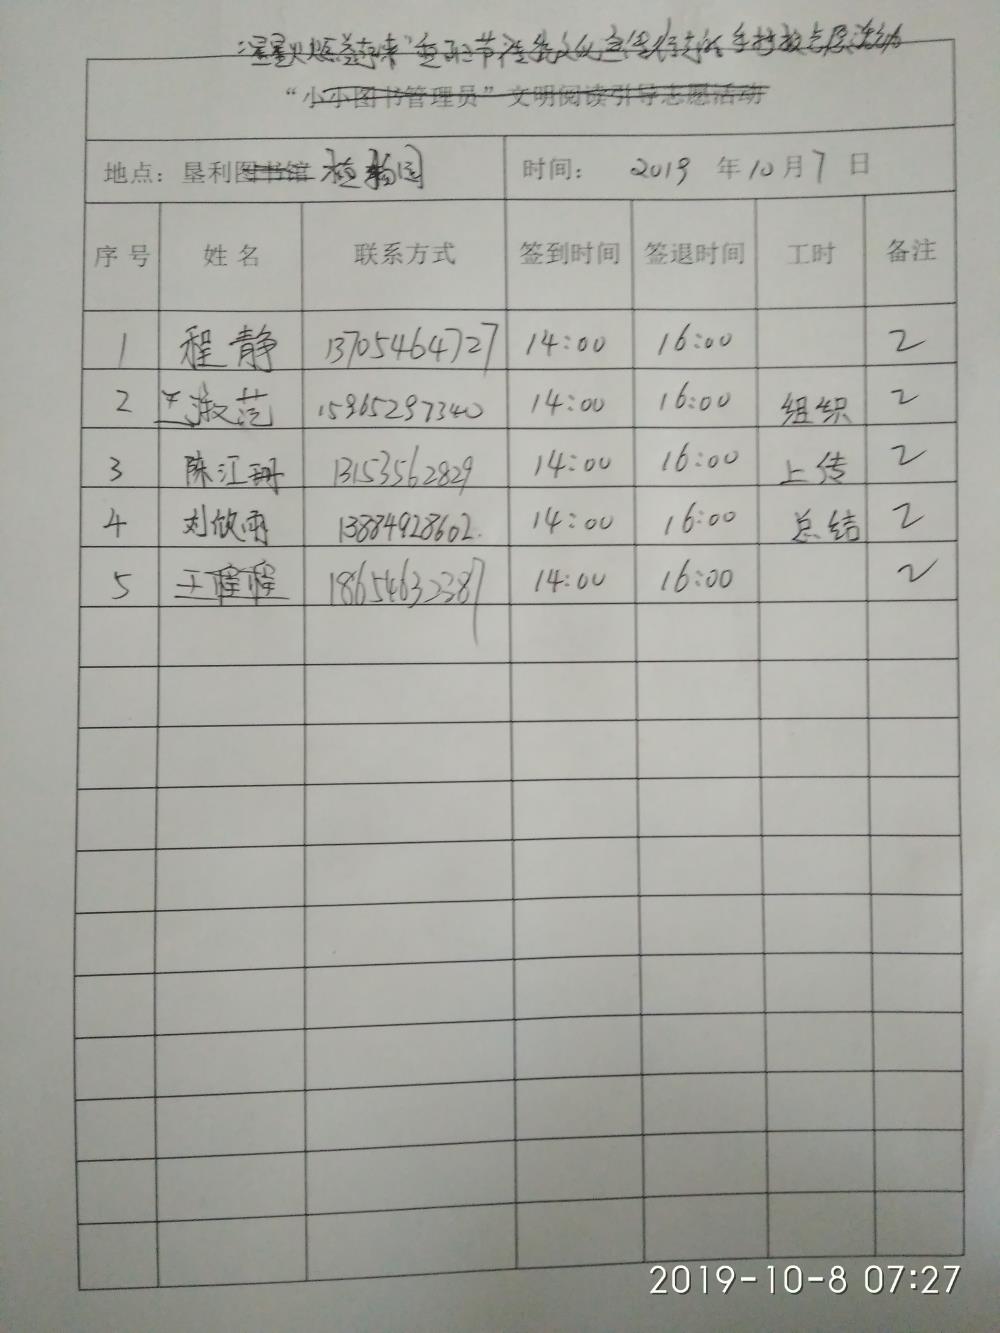 "小小图书管理员"文明阅读引导志愿活动
地点：垦利图书馆 植物园 时间： 2019 年10月7日
序号 姓名 联系方式 签到时间 签退时间 工时 备注
1 程静 13705464727 14:00 16:00 2
2 15965297340 14:00 16:00 组织 2
3 陈江珊 13153562829 14:00 16:00 上传 2
4 刘欣雨 13884928602 14:00 16:00 总结 2
5 王程程 18654632387 14:00 16:00 2
2019-10-8 07:27